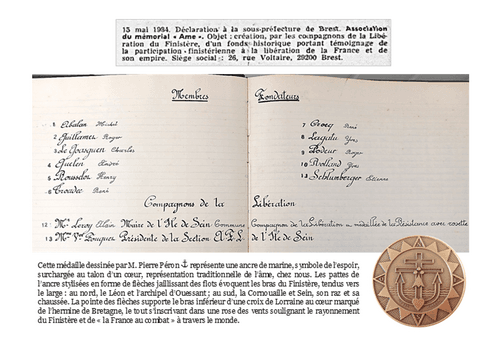 15 mai 1984. Déclaration à la sous-préfecture de Brest. Association
du mémorial « Ame ». Objet : création, par les compagnons de la Libé-
ration du Finistère, d'un fonds historique portant témoignage de la
participation finistérienne à la libération de la France et de
son empire. Siège social : 26, rue Voltaire, 29200 Brest.
Membres Fondateurs
1 Abalan Michel
2 Guillamet Roger
3 Le Goasguen Charles
4 Quelen André
5 Rousselot Henry
6 Troadec René
7 Crocq René
8 Lagatu Yves
9 Podeur Roger
10 Rolland Yves
11 Schlumberger Etienne
Compagnons de la Libération
12 Mr Leroy Alan Maire de l'Ile de Sein, Commune Compagnon de la Libération et médaillée de la Résistance avec rosette
13 Présidente de la Section de l'Ile de Sein
Cette médaille dessinée par M. Pierre Péron ⚓ représente une ancre de marine, symbole de l'espoir,
surchargée au talon d'un cœur, représentation traditionnelle de l'âme, chez nous. Les pattes de
l'ancre stylisées en forme de flèches jaillissant des flots évoquent les bras du Finistère, tendus vers
le large : au nord, le Léon et l'archipel d'Ouessant ; au sud, la Cornouaille et Sein, son raz et sa
chaussée. La pointe des flèches supporte le bras inférieur d'une croix de Lorraine au cœur marqué
de l'hermine de Bretagne, le tout s'inscrivant dans une rose des vents soulignant le rayonnement
du Finistère et de « la France au combat » à travers le monde.